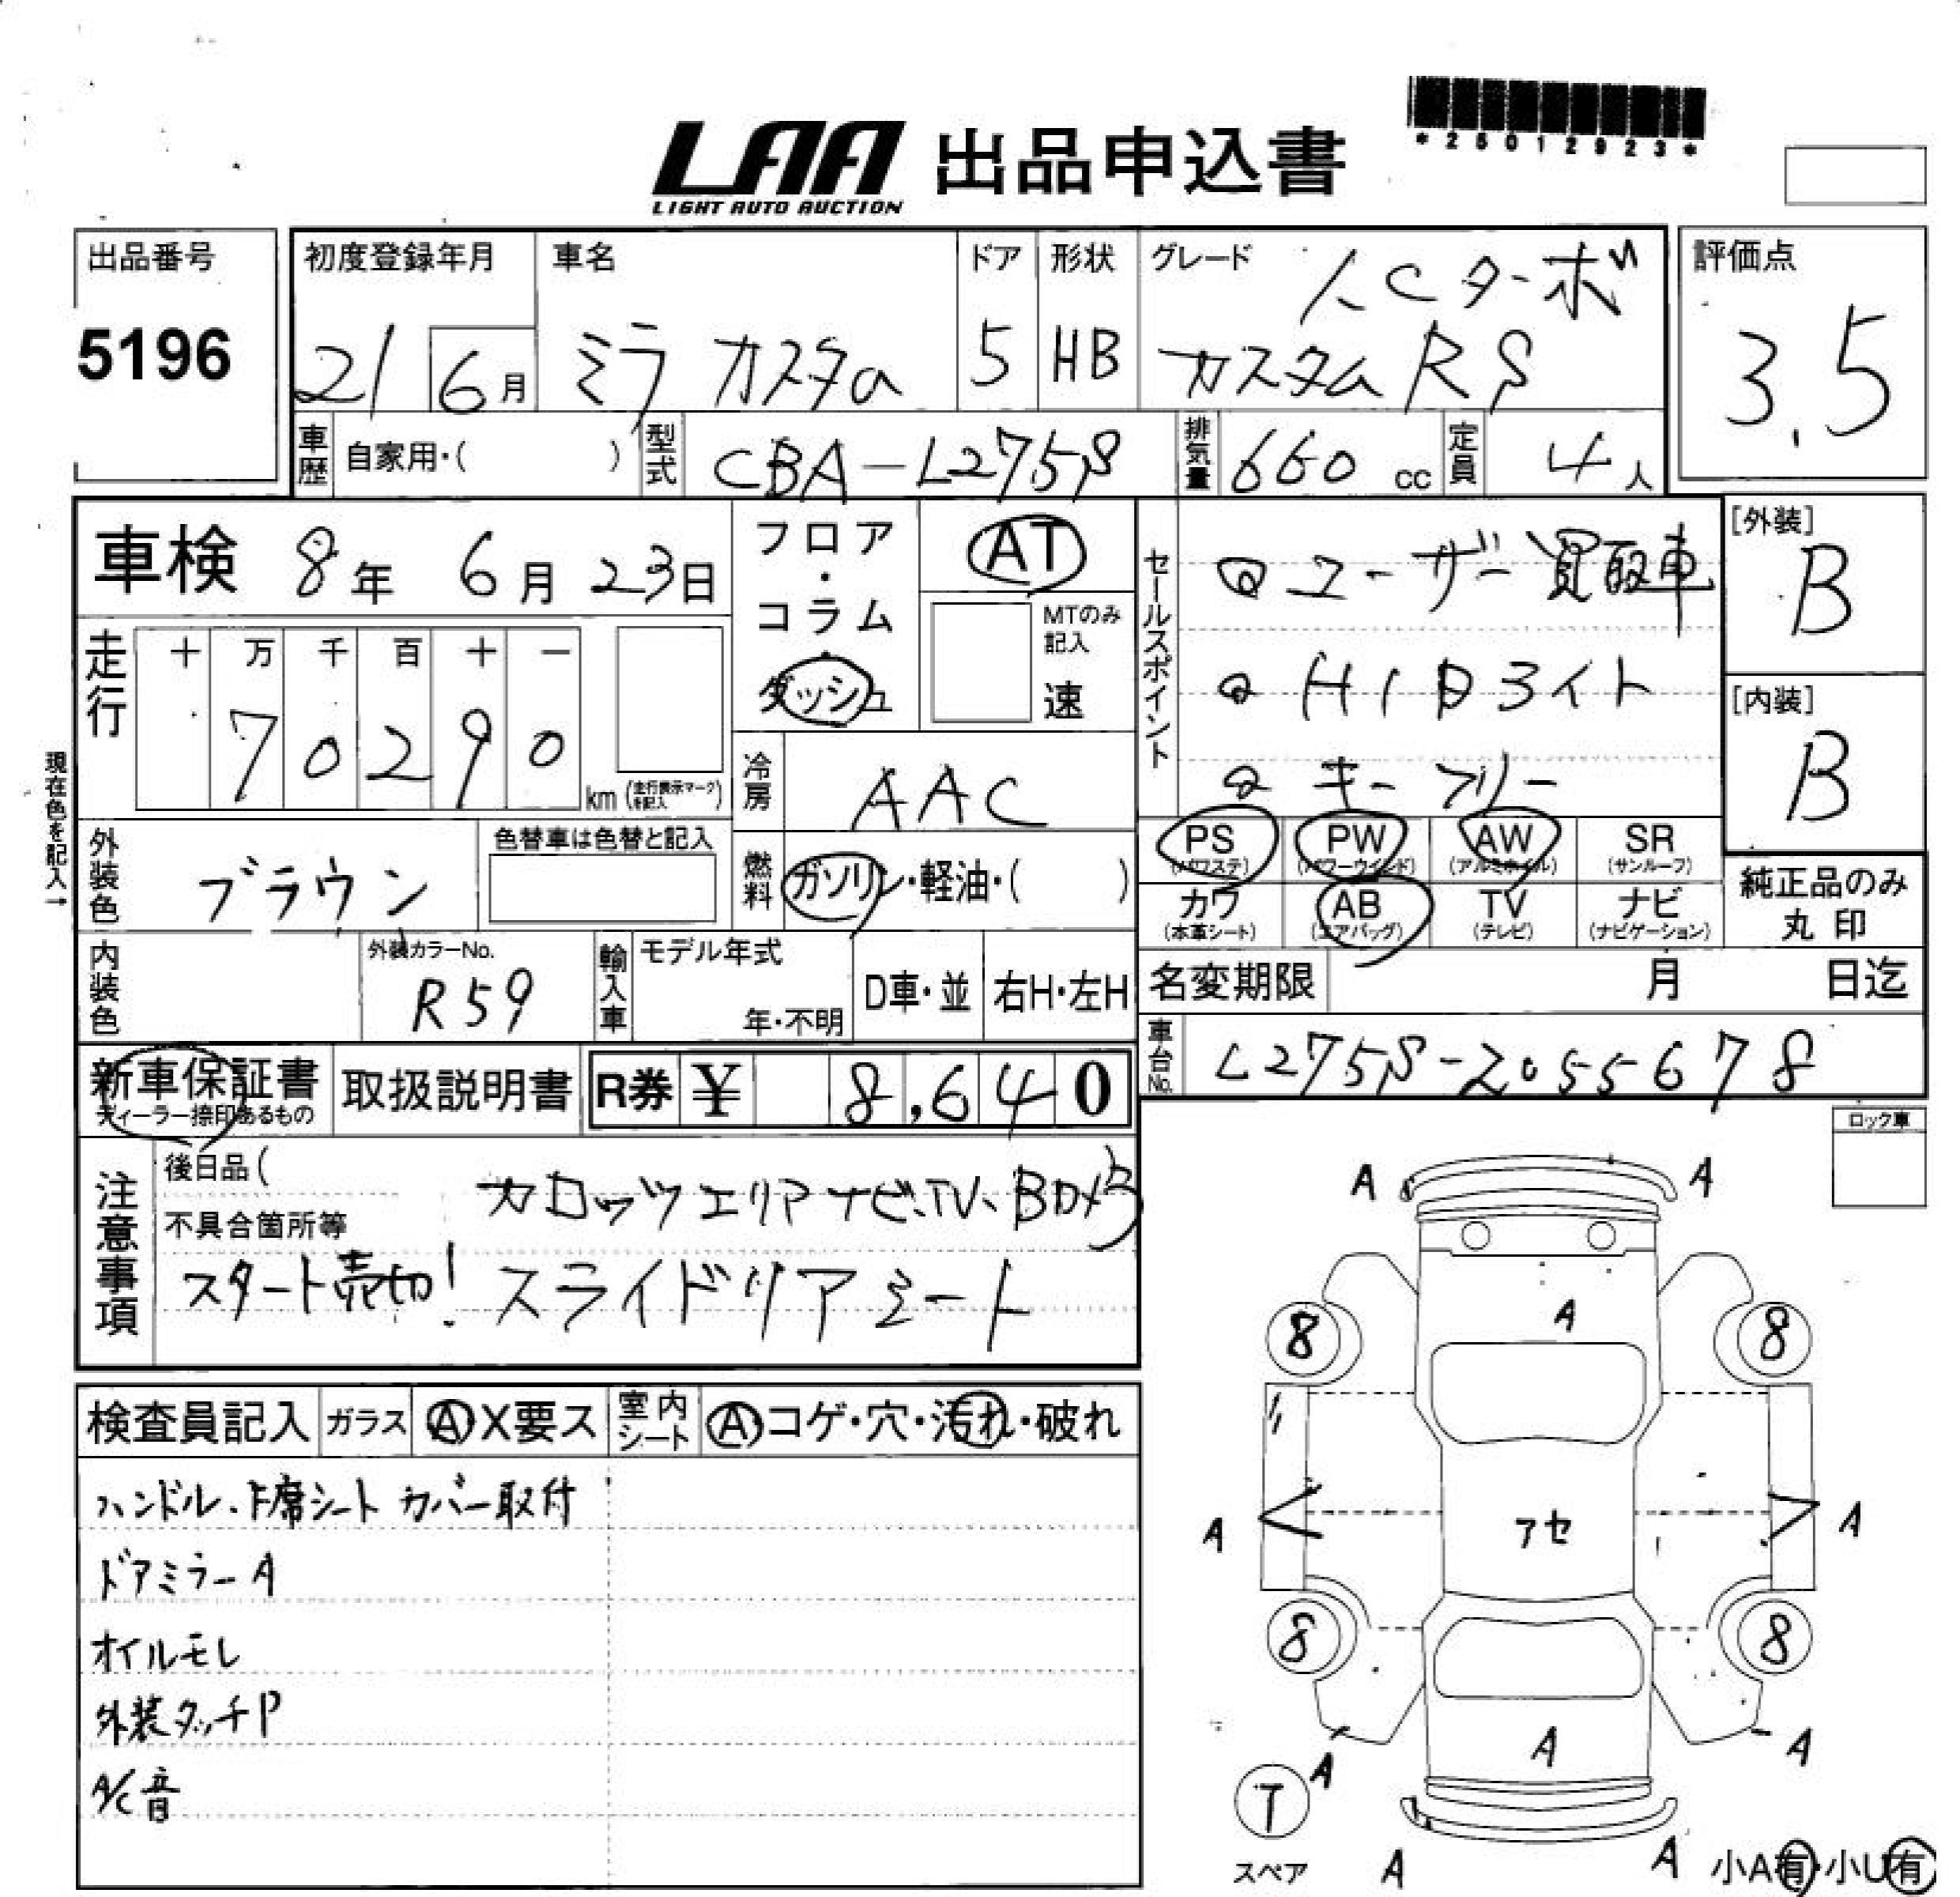 *25012923*
LAA 出品申込書
LIGHT AUTO AUCTION
出品番号
5196
初度登録年月
21 6月
車名
ミラ カスタム
ドア
5
形状
HB
グレード
ICターボ
カスタムRS
評価点
3.5
車歴 自家用・( )
型式 CBA-L275S
排気量 660 cc
定員 4人
車検 8年 6月 23日
フロア・コラム・ダッシュ
AT
MTのみ記入
速
走行
十 万 千 百 十 一
7 0 2 9 0
km (走行表示マークを記入)
現在色を記入→
冷房 AAC
セールスポイント
ユーザー買取車
HIDライト
キーフリー
[外装]
B
[内装]
B
外装色 ブラウン
色替車は色替と記入
燃料 ガソリン・軽油・( )
PS (パワステ)
PW (パワーウインド)
AW (アルミホイル)
SR (サンルーフ)
カワ (本革シート)
AB (エアバッグ)
TV (テレビ)
ナビ (ナビゲーション)
純正品のみ
丸印
内装色
外装カラーNo.
R59
輸入車
モデル年式
年・不明
D車・並
右H・左H
名変期限 月 日迄
車台No. L275S-2055678
新車保証書
ディーラー捺印あるもの
取扱説明書
R券 ¥ 8,640
ロック車
注意事項
後日品( )
不具合箇所等
カロッツェリアナビ、TV、BDメカ
スタート売切! スライドリアシート
検査員記入
ガラス A X要ス
室内シート A コゲ・穴・汚れ・破れ
ハンドル、F席シート カバー取付
ドアミラーA
オイルモレ
外装タッチP
A/C音
A A
A
8 8
A アセ A
8 8
A A A
T
スペア
A A
小A有・小U有